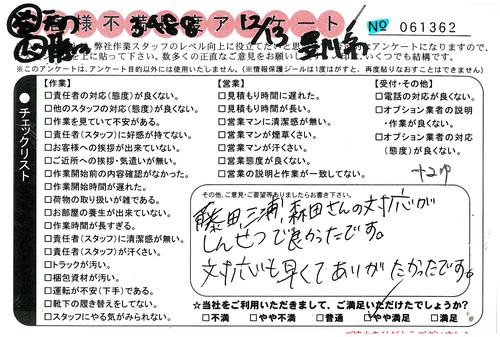 客様不満度アンケート
12/13
No 061362
弊社作業スタッフのレベル向上に役立てたいと思
アンケートになりますので、
に貼って下さい。数多くの正直なご意見をお願いし
いくつでも結構です。
※このアンケートは、アンケート目的以外には使用いたしません。(※情報保護シールは1度はがすと、再度貼りなおすことはできません)
●チェックリスト
【作業】
□責任者の対応(態度)が良くない。
□他のスタッフの対応(態度)が良くない。
□作業を見ていて不安がある。
□責任者(スタッフ)に好感が持てない。
□お客様への挨拶が出来ていない。
□ご近所への挨拶・気遣いが無い。
□作業開始前の内容確認がなかった。
□作業開始時間が遅れた。
□荷物の取り扱いが雑である。
□お部屋の養生が出来ていない。
□作業時間が長すぎる。
□責任者(スタッフ)に清潔感が無い。
□責任者(スタッフ)が汗くさい。
□トラックが汚い。
□梱包資材が汚い。
□運転が不安(下手)である。
□靴下の履き替えをしてない。
□スタッフにやる気がみられない。
【営業】
□見積もり時間に遅れた。
□見積もり時間が長い。
□営業マンに清潔感が無い。
□営業マンが煙草くさい。
□営業マンが汗くさい。
□営業態度が良くない。
□営業の説明と作業が一致してない。
【受付・その他】
□電話の対応が良くない。
□オプション業者の説明
・作業が良くない。
□オプション業者の対応
(態度)が良くない。
その他、ご意見・ご要望等ありましたらお書き下さい。
藤田、三浦、森田さんの対応が
しんせつで良かったです。
対応も早くてありがたかったです。
☆当社をご利用いただきまして、ご満足いただけたでしょうか?
□不満 □やや不満 □普通 □やや満足 □満足